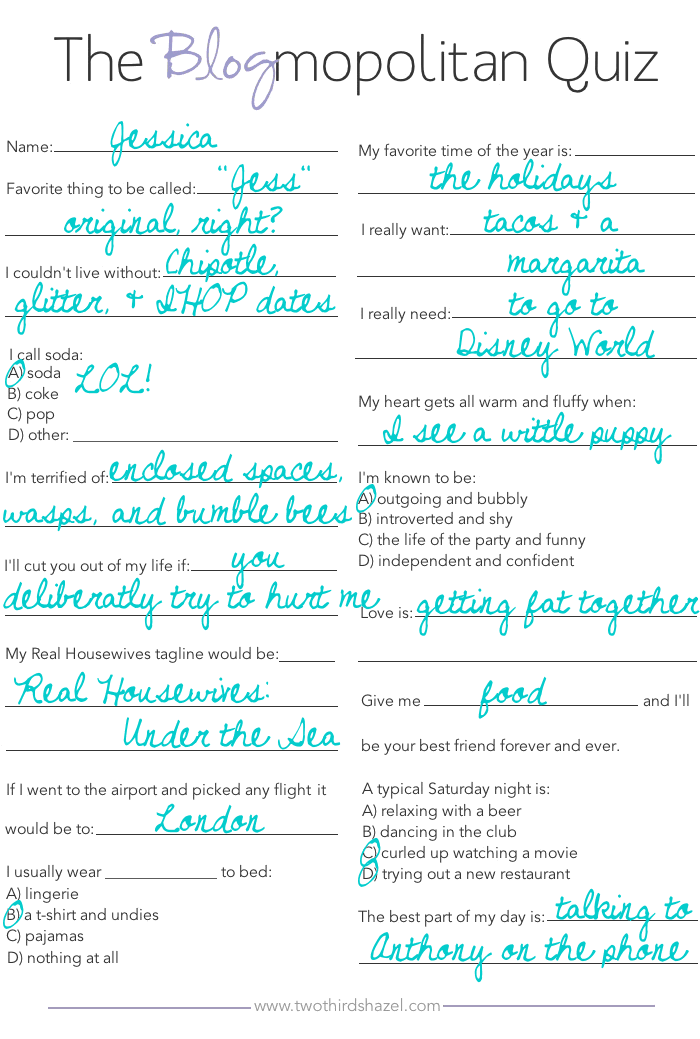 The Blogmopolitan Quiz
Name: Jessica
Favorite thing to be called: "Jess"
original, right?
I couldn't live without: Chipotle,
glitter, & IHOP dates
I call soda:
A) soda
B) coke LOL!
C) pop
D) other:
I'm terrified of: enclosed spaces,
wasps, and bumble bees
I'll cut you out of my life if: you
deliberatly try to hurt me
My Real Housewives tagline would be:
Real Housewives:
Under the Sea
If I went to the airport and picked any flight it
would be to: London
I usually wear ____________ to bed:
A) lingerie
B) a t-shirt and undies
C) pajamas
D) nothing at all
My favorite time of the year is:
the holidays
I really want: tacos & a
margarita
I really need: to go to
Disney World
My heart gets all warm and fluffy when:
I see a wittle puppy
I'm known to be:
A) outgoing and bubbly
B) introverted and shy
C) the life of the party and funny
D) independent and confident
Love is: getting fat together
Give me food and I'll
be your best friend forever and ever.
A typical Saturday night is:
A) relaxing with a beer
B) dancing in the club
C) curled up watching a movie
D) trying out a new restaurant
The best part of my day is: talking to
Anthony on the phone
www.twothirdshazel.com